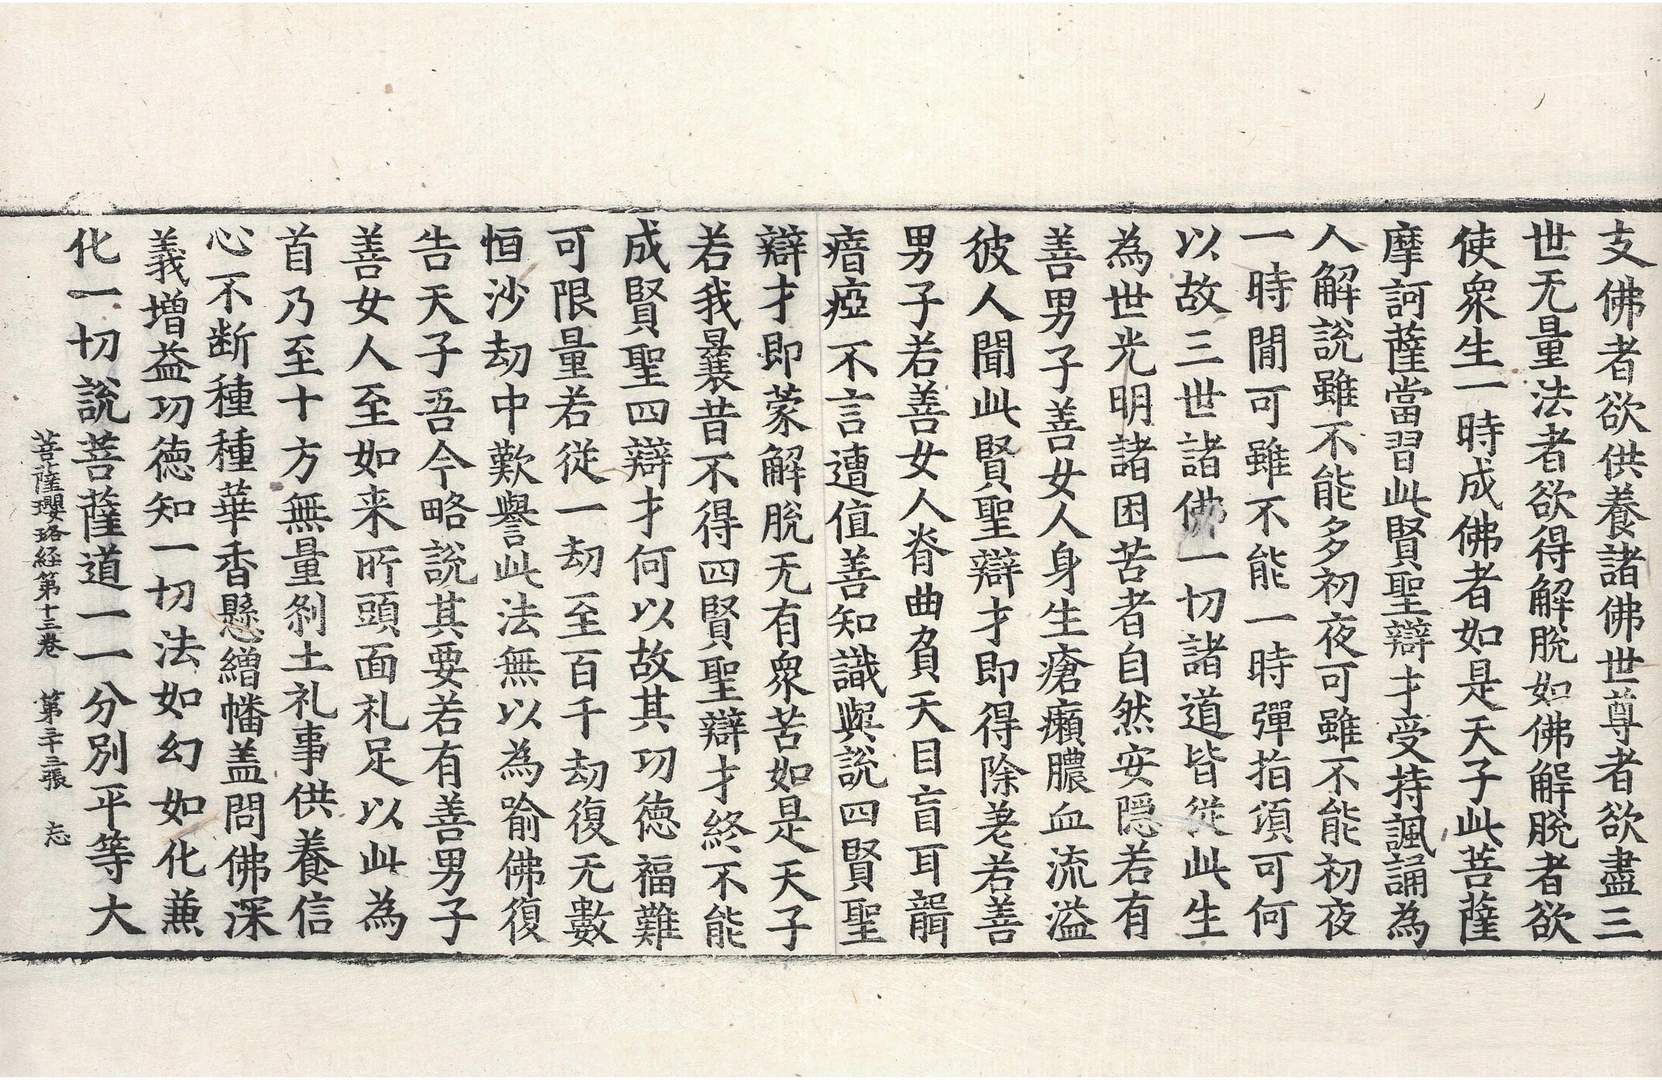 支佛者欲供養諸佛世尊者欲盡三
世无量法者欲得解脫如佛解脫者欲
使衆生一時成佛者如是天子此菩薩
摩訶薩當習此賢聖辯才受持諷誦為
人解說雖不能多初夜可雖不能初夜
一時閒可雖不能一時彈指頃可何
以故三世諸佛一切諸道皆從此生
為世光明諸困苦者自然安隱若有
善男子善女人身生瘡癩膿血流溢
彼人聞此賢聖辯才即得除差若善
男子若善女人脊曲負天目盲耳聾
瘖瘂不言遭值善知識與說四賢聖
辯才即蒙解脫无有衆苦如是天子
若我曩昔不得四賢聖辯才終不能
成賢聖四辯才何以故其功德福難
可限量若從一劫至百千劫復无數
恒沙劫中歎譽此法無以為喻佛復
告天子吾今略說其要若有善男子
善女人至如来所頭面礼足以此為
首乃至十方無量剎土礼事供養信
心不断種種華香懸繒幡盖問佛深
義增益功德知一切法如幻如化兼
化一切說菩薩道一一分別平等大
菩薩瓔珞経第十三卷 第三十二張 忘